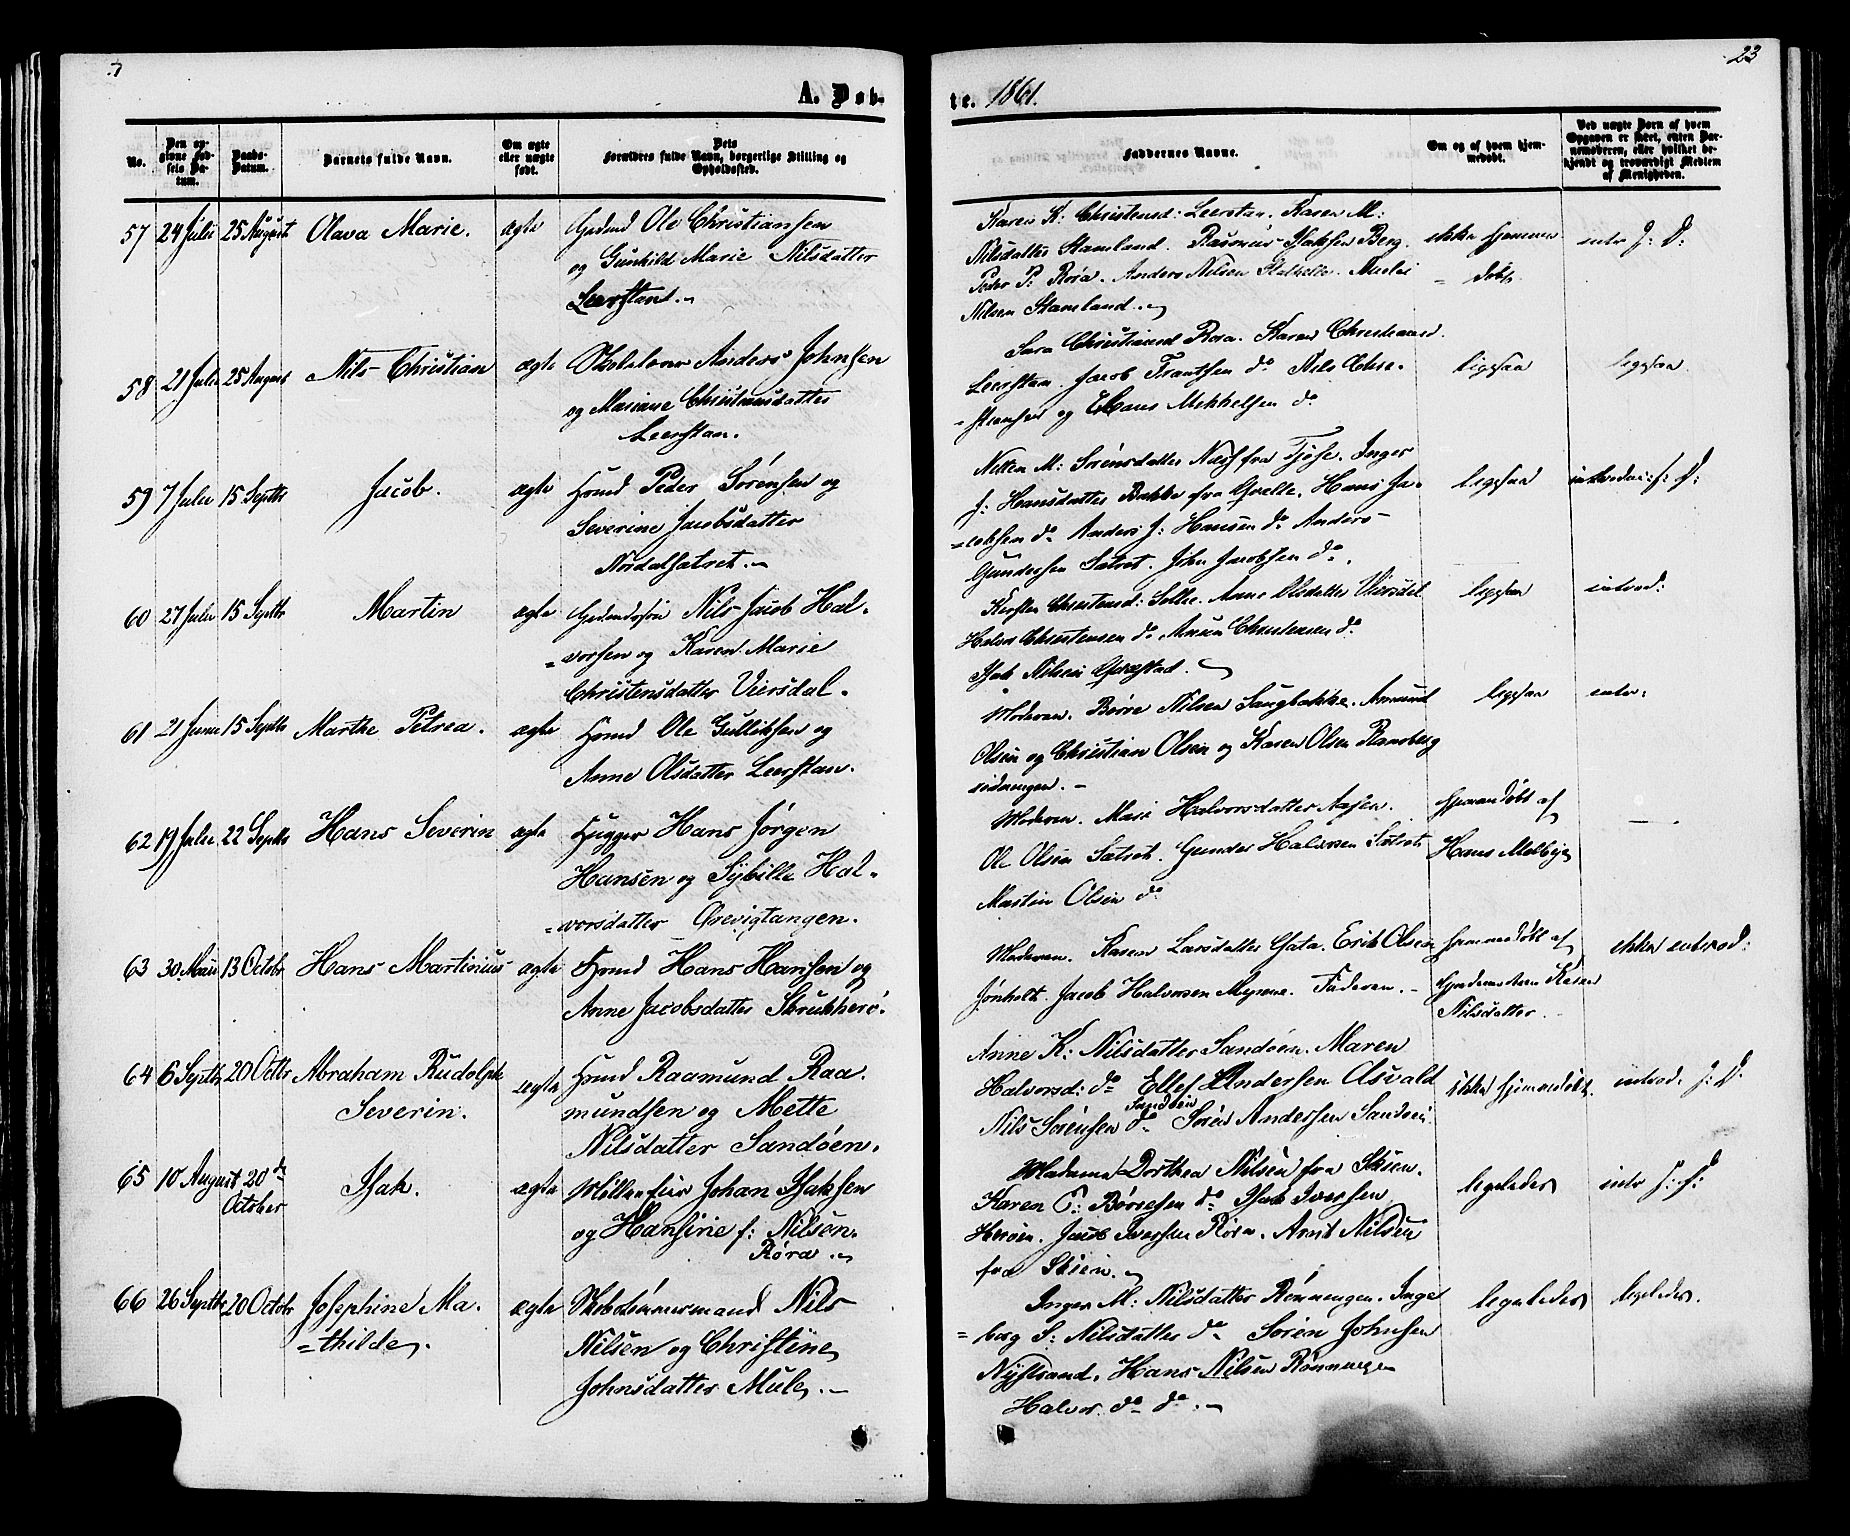 23
A. Døb-
te. 1861.
No.
Den opgivne Fødsels Datum.
Daabs-Datum.
Barnets fulde Navn.
Om ægte eller uægte født.
Dets Forældres fulde Navn, borgerlige Stilling og Opholdssted.
Faddernes Navne.
Om og af hvem hjemmedøbt.
Ved uægte Børn af hvem Opgaven er sket, enten Barnemoderen, eller hvilket bekjendt og troværdigt Medlem af Menigheden.
57 24 Juli 25 August Olava Marie. ægte Gudmd Ole Christiansen
og Gunhild Marie Nilsdatter
Leerstan.
Karen K: Christensd: Leerstan. Karen M:
Nilsdatter Stamland. Rasmus Isaksen Berg.
Peder P: Røra. Anders Nilsen Stathelle.
Nilsen Stamland.
ikke hjemme
= døbt.
intr J: D:
58 21 Juli 25 August Nils Christian ægte Skolelærer Anders Johnsen
og Mariane Christensdatter
Leerstan.
Sara Christiansd Røra. Karen Christiansd.
Leerstan. Jacob Frantsen do Nils Chri=
=stiansen og Claus Mikkelsen do
ligesaa
ligesaa.
59 7 Juli 15 Septbr Jacob. ægte Hmd Peder Sørensen og
Severine Jacobsdatter
Nordalsætret.
M: Sørensdatter Næs fra Tjøse. Inger
J: Hansdatter Bakke fra Hans Ja=
=cobsen do Anders J: Hansen do Anders
Gundersen Sætret. John Jacobsen do.
ligesaa
60 27 Juli 15 Septbr Martin ægte Gudmdssøn Nils Jacob Hal=
=vorsen og Karen Marie
Christensdatter Viersdal.
Kirsten Christensd: Solli. Anne Olsdatter Viersdal
Halvor Christensen do. Christensen do
Isak Nilsen Grøstad.
ligesaa
introd:
61 21 Juni 15 Septbr Marthe Petrea. ægte Hmd Ole Gulliksen og
Anne Olsdatter Leerstan.
Moderen. Børre Nilsen Langbakke. Amund
Olsen og Christian Olsen og Karen Olsen Ramberg
ligesaa
intr:
62 19 Juli 22 Septbr Hans Severin ægte Hugger Hans Jørgen
Hansen og Sybille Hal=
=vorsdatter Ørevigtangen.
Moderen. Mari Halvorsdatter Aasen.
Ole Olsen Sætret. Gunder Halvorsen Sætret
Martin Olsen do
hjemmedøbt af
Hans Melbye
—
63 30 Mai 13 Octobr Hans Martinius ægte Hmd Hans Hansen og
Anne Jacobsdatter Skrukkerø.
Moderen. Karen Larsdatter Gata. Erik Olsen
Jønholt. Jacob Halvorsen Myrene. Faderen.
hjemmedøbt af
Karen
Nilsdatter.
ikke introd:
64 6 Septbr 20 Octbr Abraham Rudolph
Severin. ægte Hmd Raamund Raa=
mundsen og Mette
Nilsdatter Sandøen.
Anne K: Nilsdatter Sandøen. Maren
Halvorsd: do Ellef Andersen Asvald
Sandøen
Nils Sørensen do Søren Andersen Sandøen.
ikke hjemmedøbt.
introd. J: D.
65 10 August 20de
October Isak. ægte Møllerfuir Johan Isaksen
og Hansine f: Nilsen.
Røra.
Madame Dorthea Nilsen fra Skien.
Karen T: Børresen do Isak Iversen
Herøen. Jacob Iversen Røra. Arnt Nilsen
fra Skien.
ligeledes
intr J: D:
66 26 Septbr 20 Octobr Josephine Ma=
=thilde. ægte Skibstømmermand Nils
Nilsen og Christine
Johnsdatter Mule.
Inger M: Nilsdatter Rønningen. Inge
=borg S: Nilsdatter do Søren Johnsen
Nystrand. Hans Nilsen Rønningen
Halvor do do.
ligeledes
ligeledes.